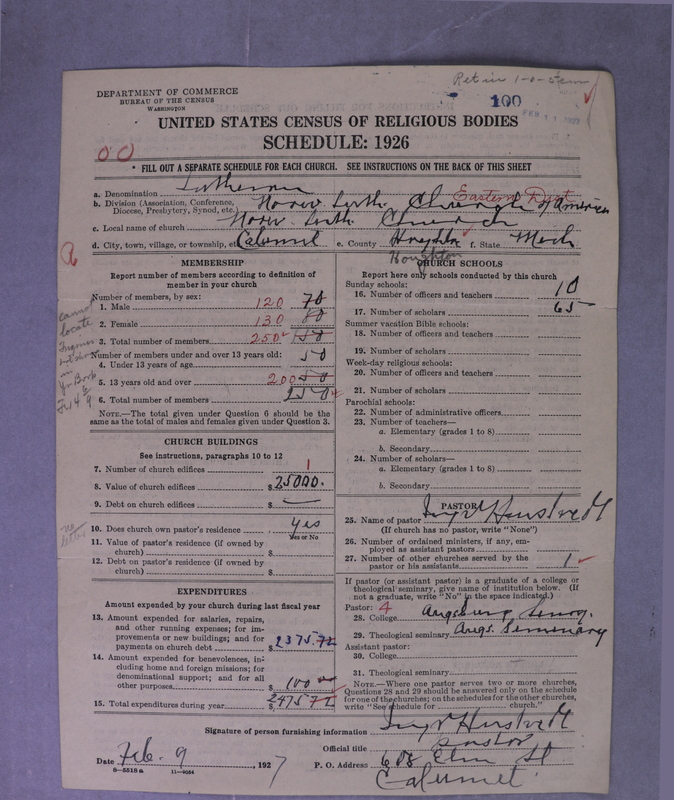 Ret in 1-0-5
DEPARTMENT OF COMMERCE
BUREAU OF THE CENSUS
WASHINGTON
100
FEB 11 1927
UNITED STATES CENSUS OF RELIGIOUS BODIES
SCHEDULE: 1926
00
FILL OUT A SEPARATE SCHEDULE FOR EACH CHURCH. SEE INSTRUCTIONS ON THE BACK OF THIS SHEET
a. Denomination Lutheran
Eastern Dist
b. Division (Association, Conference, Diocese, Presbytery, Synod, etc.) Norw Luth. Church of America
c. Local name of church Norw. Luth Church
d. City, town, village, or township, etc. Calumet e. County Houghton f. State Mich
Houghton
MEMBERSHIP
Report number of members according to definition of
member in your church
Number of members, by sex:
1. Male 120 70
2. Female 130 80
3. Total number of members 250 150
Number of members under and over 13 years old:
4. Under 13 years of age 50
5. 13 years old and over 200 50
6. Total number of members 250
NOTE.—The total given under Question 6 should be the
same as the total of males and females given under Question 3.
cannot
locate
in
Yr Book
CHURCH BUILDINGS
See instructions, paragraphs 10 to 12
7. Number of church edifices 1
8. Value of church edifices $25000.
9. Debt on church edifices $ —
10. Does church own pastor's residence yes
Yes or No
11. Value of pastor's residence (if owned by
church) $
12. Debt on pastor's residence (if owned by
church) $
no
letter
EXPENDITURES
Amount expended by your church during last fiscal year
13. Amount expended for salaries, repairs,
and other running expenses; for im-
provements or new buildings; and for
payments on church debt $2375.72
14. Amount expended for benevolences, in-
cluding home and foreign missions; for
denominational support; and for all
other purposes $100 00
15. Total expenditures during year $2475 72
CHURCH SCHOOLS
Report here only schools conducted by this church
Sunday schools:
16. Number of officers and teachers 10
17. Number of scholars 65
Summer vacation Bible schools:
18. Number of officers and teachers
19. Number of scholars
Week-day religious schools:
20. Number of officers and teachers
21. Number of scholars
Parochial schools:
22. Number of administrative officers
23. Number of teachers—
a. Elementary (grades 1 to 8)
b. Secondary
24. Number of scholars—
a. Elementary (grades 1 to 8)
b. Secondary
PASTOR
25. Name of pastor
(If church has no pastor, write "None")
26. Number of ordained ministers, if any, em-
ployed as assistant pastors
27. Number of other churches served by the
pastor or his assistants 1
If pastor (or assistant pastor) is a graduate of a college or
theological seminary, give name of institution below. (If
not a graduate, write "No" in the space indicated.)
Pastor: 4
28. College Augsburg
29. Theological seminary Augs. Seminary
Assistant pastor:
30. College
31. Theological seminary
NOTE.—Where one pastor serves two or more churches,
Questions 28 and 29 should be answered only on the schedule
for one of the churches; on the schedules for the other churches,
write "See schedule for church."
Signature of person furnishing information
Official title Pastor
Date Feb. 9, 1927 P. O. Address 608 Elm St
8—5518a 11—9034 Calumet.